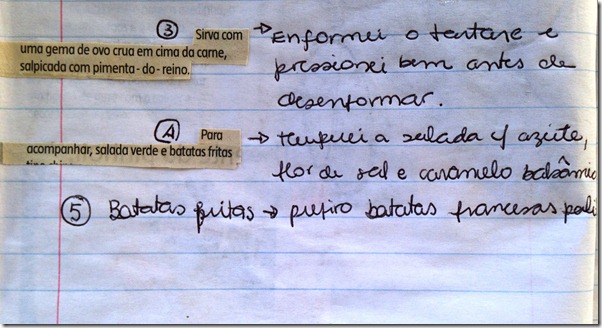 ③ Sirva com
uma gema de ovo crua em cima da carne,
salpicada com pimenta-do-reino.
→ Enformei o tartare e
pressionei bem antes de
desenformar.
④ Para
acompanhar, salada verde e batatas fritas
→ temperei a salada c/ azeite,
flor de sal e caramelo balsâmic
⑤ Batatas fritas → prefiro batatas francesas